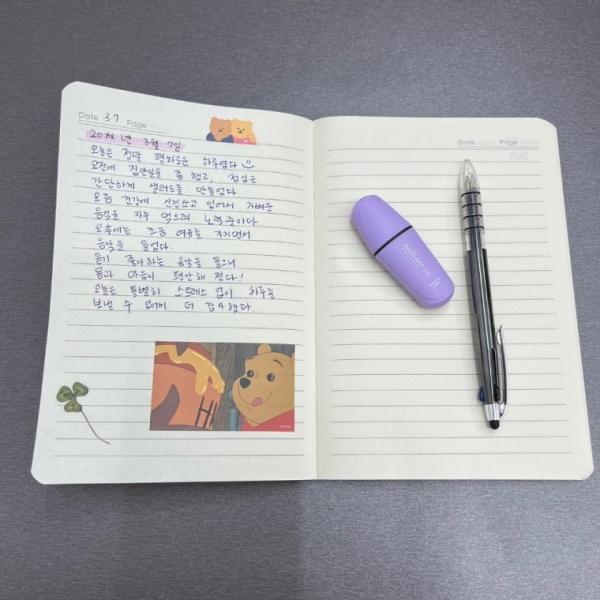 Date 3.7 Page
20XX년 3월 7일
오늘은 정말 평화로운 하루였다
오전에 집안일을 좀 했고, 점심은
간단하게 샐러드를 만들었다
요즘 건강에 신경쓰고 있어서 가벼운
음식을 자주 먹으려 노력중이다
오후에는 조금 여유를 가지면서
음악을 들었다.
듣기 좋아하는 음악을 들으니
몸과 마음이 편안해 졌다!
오늘은 특별히 스트레스 없이 하루를
보낼 수 있어서 더 감사했다.
Date Page